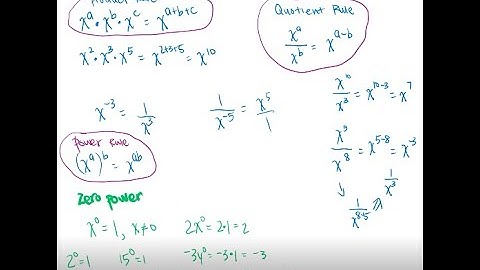 Product Rule
xᵃ • xᵇ • xᶜ = xᵃ⁺ᵇ⁺ᶜ
x² • x³ • x⁵ = x²⁺³⁺⁵ = x¹⁰
Quotient Rule
xᵃ/xᵇ = xᵃ⁻ᵇ
x¹⁰/x³ = x¹⁰⁻³ = x⁷
x⁻³ = 1/x³
1/x⁻⁵ = x⁵/1
x⁵/x⁸ = x⁵⁻⁸ = x⁻³
1/x³
↓ 1/x⁸⁻⁵ ⇗
Power Rule
(xᵃ)ᵇ = xᵃᵇ
Zero power
x⁰ = 1, x ≠ 0
2x⁰ = 2•1 = 2
2⁰ = 1
15⁰ = 1
-3y⁰ = -3•1 = -3